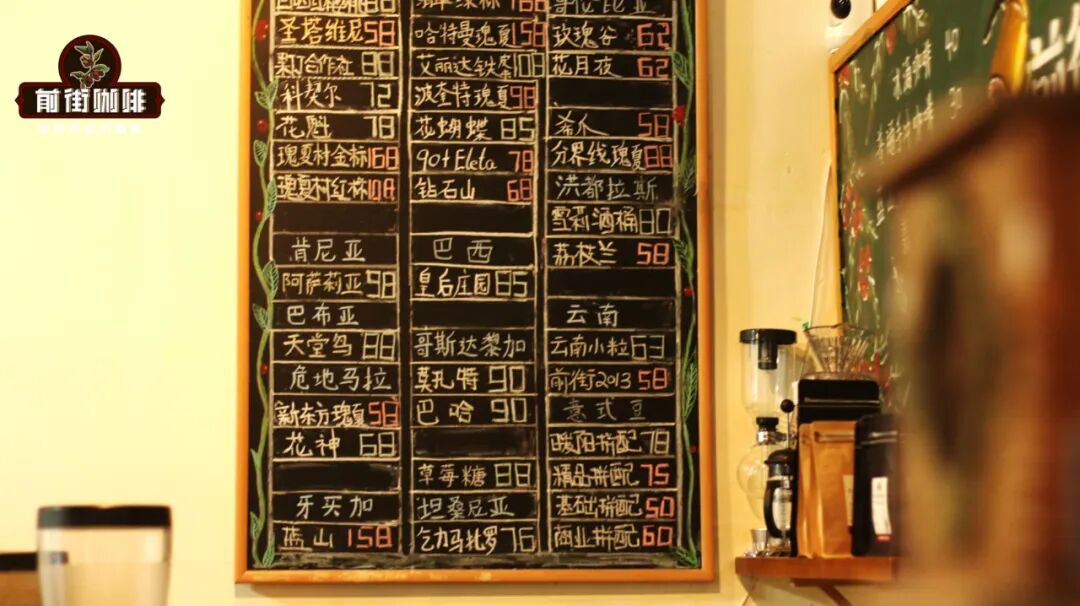 前街咖啡
圣塔维尼 58
果丁合作社 88
科契尔 72
花魁 78
瑰夏村金标 168
瑰夏村红标 108
肯尼亚
阿萨莉亚 98
巴布亚
天堂鸟 88
危地马拉
新东方瑰夏 58
花神 68
牙买加
蓝山 158
翡翠绿标 168
哈特曼瑰夏 158
艾丽达铁皮 108
波奎特瑰夏 98
花蝴蝶 85
90+ Eleta 78
钻石山 68
巴西
皇后庄园 85
哥斯达黎加
莫扎特 90
巴哈 90
草莓糖 88
坦桑尼亚
乞力马扎罗 76
哥伦比亚
玫瑰谷 62
花月夜 62
希爪 58
分界线瑰夏 88
洪都拉斯
雪莉酒桶 80
荔枝兰 58
云南
云南小粒 63
前街2013 58
意式豆
暖阳拼配 78
精品拼配 75
基础拼配 50
商业拼配 60